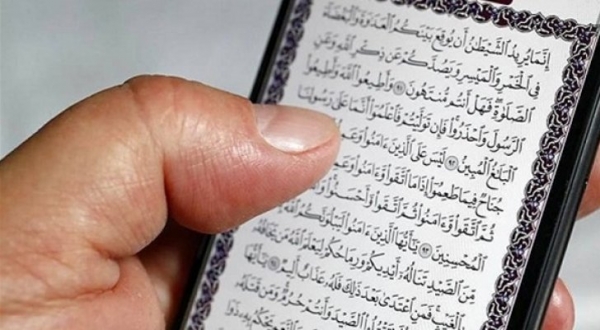 إِنَّمَا يُرِيدُ ٱلشَّيْطَٰنُ أَن يُوقِعَ بَيْنَكُمُ ٱلْعَدَٰوَةَ وَٱلْبَغْضَآءَ
فِى ٱلْخَمْرِ وَٱلْمَيْسِرِ وَيَصُدَّكُمْ عَن ذِكْرِ ٱللَّهِ وَعَنِ
ٱلصَّلَوٰةِ فَهَلْ أَنتُم مُّنتَهُونَ ٩١ وَأَطِيعُوا۟ ٱللَّهَ وَأَطِيعُوا۟
ٱلرَّسُولَ وَٱحْذَرُوا۟ فَإِن تَوَلَّيْتُمْ فَٱعْلَمُوٓا۟ أَنَّمَا عَلَىٰ رَسُولِنَا
ٱلْبَلَٰغُ ٱلْمُبِينُ ٩٢ لَيْسَ عَلَى ٱلَّذِينَ ءَامَنُوا۟
جُنَاحٌ فِيمَا طَعِمُوٓا۟ إِذَا مَا ٱتَّقَوا۟ وَّءَامَنُوا۟
ثُمَّ ٱتَّقَوا۟ وَّءَامَنُوا۟ ثُمَّ ٱتَّقَوا۟ وَّأَحْسَنُوا۟
ٱلْمُحْسِنِينَ ٩٣ يَٰٓأَيُّهَا ٱلَّذِينَ ءَامَنُوا۟ لَيَبْلُوَنَّكُمُ ٱللَّهُ
مِّنَ ٱلصَّيْدِ تَنَالُهُۥٓ أَيْدِيكُمْ وَرِمَاحُكُمْ لِيَعْلَمَ ٱللَّهُ مَن يَخَافُهُۥ
فَمَنِ ٱعْتَدَىٰ بَعْدَ ذَٰلِكَ فَلَهُۥ عَذَابٌ أَلِيمٌ ٩٤ يَٰٓأَيُّهَا
ٱلصَّيْدَ وَأَنتُمْ حُرُمٌ وَمَن قَتَلَهُۥ
يَحْكُمُ بِهِۦ ذَوَا